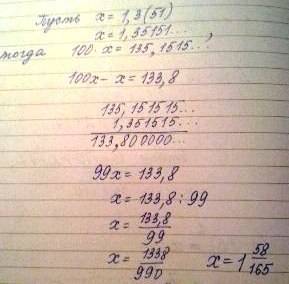 Пусть x = 1,3(51)
x = 1,35151...,
тогда 100·x = 135,1515...
100x - x = 133,8
135,151515...
1,351515...
133,800000...
99x = 133,8
x = 133,8 : 99
x = 133,8/99
x = 1338/990 x = 1 58/165